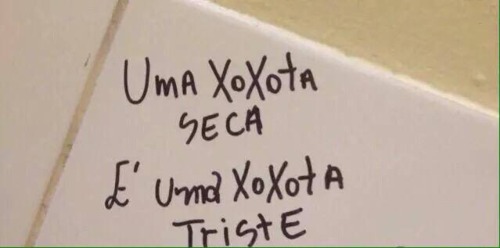 UmA XoXotA
SECA
É umA XoXotA
TristE